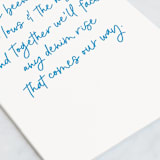 been
lows & the
nd together we'll face
any denim rise
that comes our way.